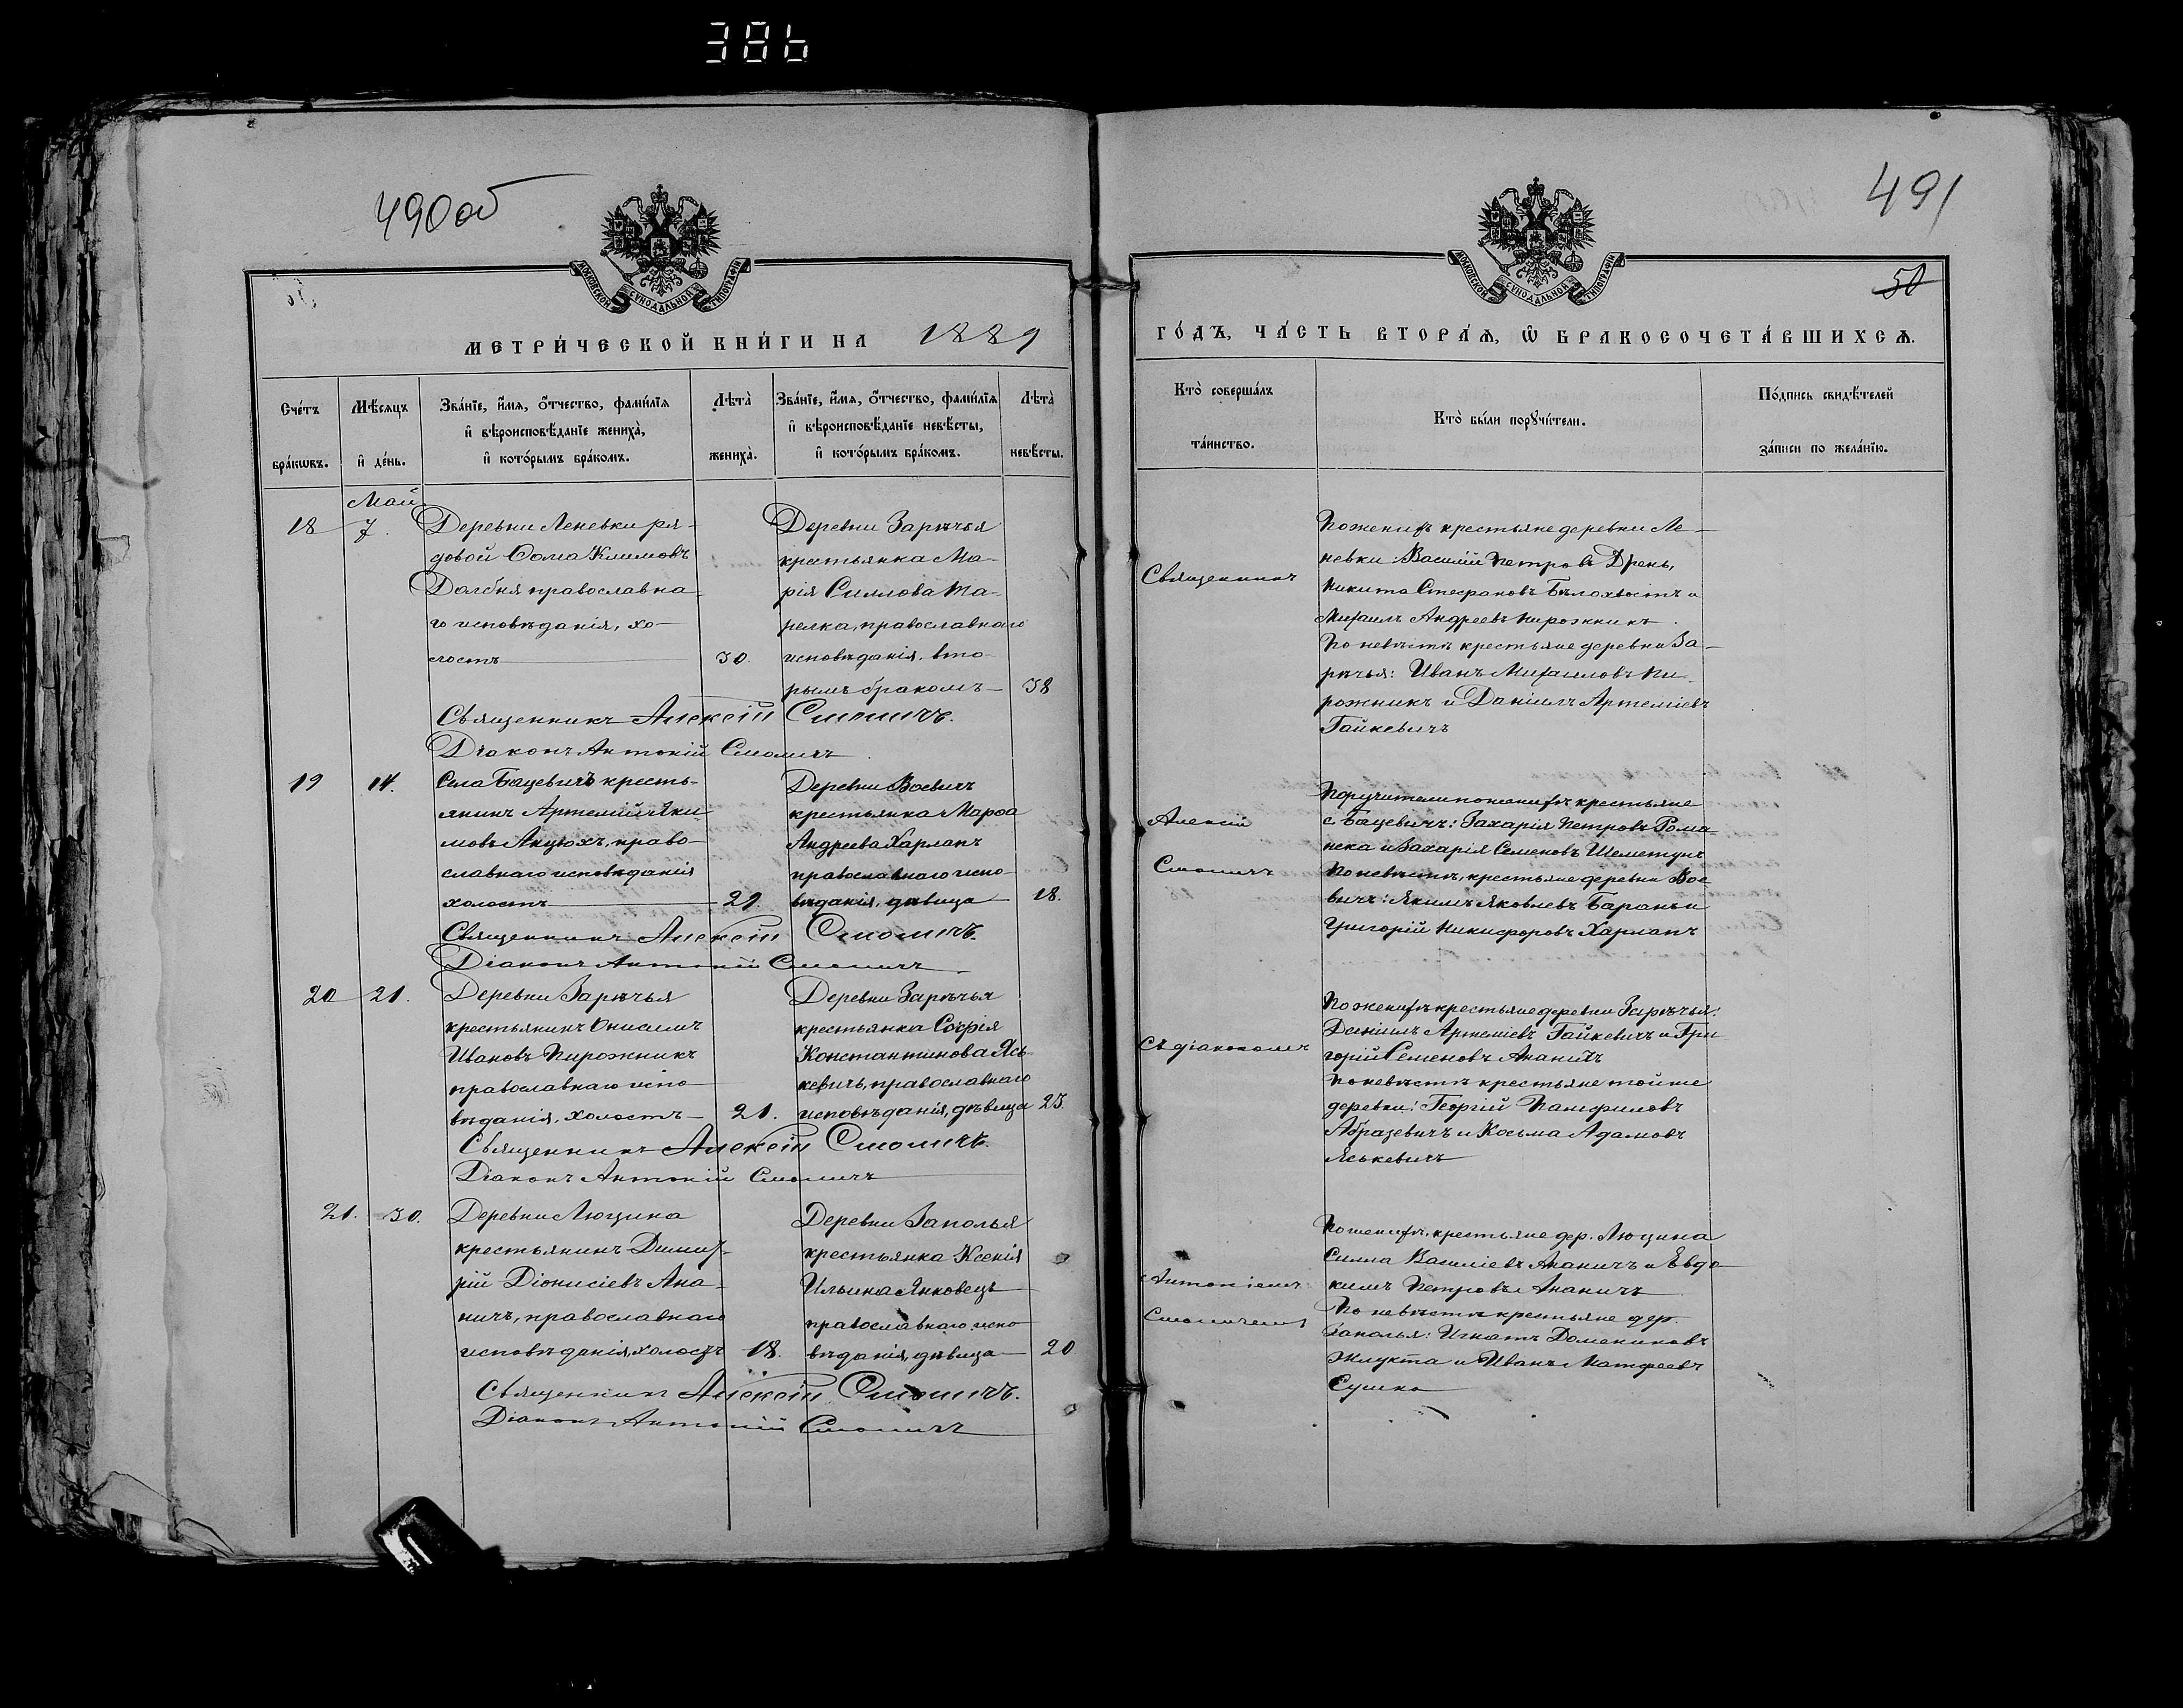 386
490об
491
50
МОСКОВСКОЙ СѴНОДАЛЬНОЙ ТИПОГРАФІИ
МОСКОВСКОЙ СѴНОДАЛЬНОЙ ТИПОГРАФІИ
МЕТРИ́ЧЕСКОЙ КНИ́ГИ НА 1889
ГО́ДЪ, ЧА́СТЬ ВТОРА́Ѧ, Ѡ҆ БРАКОСОЧЕТА́ВШИХСѦ.
Сче́тъ бра́кѡвъ.
Мѣ́сяцъ и҆ де́нь.
Зва́нїе, и҆́мѧ, о҆́тчество, фами́лїѧ
и҆ вѣроисповѣ́данїе жениха̀,
и҆ кото́рымъ бра́комъ.
Лѣта̀ жениха̀.
Зва́нїе, и҆́мѧ, о҆́тчество, фами́лїѧ
и҆ вѣроисповѣ́данїе невѣ́сты,
и҆ кото́рымъ бра́комъ.
Лѣта̀ невѣ́сты.
Кто̀ соверша́лъ
та́инство.
Кто̀ бы́ли порꙋчи́тели.
По́дпись свидѣ́телей
за́писи по жела́нїю.
Май
18
7.
Деревни Леневки ря-
довой Ѳома Климовъ
Долбня православна
го исповѣданія, хо-
лостъ
30.
Деревни Зарѣчья
крестьянка Ма-
рія Силлова Та-
релка, православнаго
исповѣданія, вто-
рымъ бракомъ
38
Священникъ Алексій Смоличъ.
Діаконъ Антоній Смоличъ.
19
14.
Села Бацевичъ кресть-
янинъ Артемій Яки
мовъ Анцюхъ, право-
славнаго исповѣданія
холостъ
21.
Деревни Воевичъ
крестьянка Марѳа
Андреева Харланъ
православнаго испо-
вѣданія, дѣвица
18.
Священникъ Алексій Смоличъ.
Діаконъ Антоній Смоличъ
20
21.
Деревни Зарѣчья
крестьянинъ Онисимъ
Ивановъ Пирожникъ
православнаго испо-
вѣданія, холостъ
21.
Деревни Зарѣчья
крестьянка Софія
Константинова Ясь-
кевичъ, православнаго
исповѣданія, дѣвица
23.
Священникъ Алексій Смоличъ.
Діаконъ Антоній Смоличъ
21.
30.
Деревни Люцина
крестьянинъ Димит-
рій Діонисіевъ Ана-
ничъ, православнаго
исповѣданія, холостъ
18.
Деревни Заполья
крестьянка Ксенія
Ильина Янковецъ
православнаго испо
вѣданія, дѣвица
20
Священникъ Алексій Смоличъ.
Діаконъ Антоній Смоличъ
Священникъ
Алексій
Смоличъ
Съ діакономъ
Антоніемъ
Смоличемъ
По женихѣ крестьяне деревни Ле-
невки: Василій Петровъ Дрень,
Никита Стефановъ Бѣлохвостъ и
Михаилъ Андреевъ Пирожникъ.
По невѣстѣ крестьяне деревни За-
рѣчья: Иванъ Михаиловъ Пи-
рожникъ и Даніилъ Артеміевъ
Гайкевичъ
Поручители по женихѣ крестьяне
с. Бацевичъ: Захарія Петровъ Рома-
нека и Захарія Семеновъ Шеметунъ
По невѣстѣ, крестьяне деревни Вое-
вичъ: Якимъ Яковлевъ Баранъ и
Григорій Никифоровъ Харланъ
По женихѣ крестьяне деревни Зарѣчья:
Даніилъ Артеміевъ Гайкевичъ и Гри
горій Семеновъ Ананичъ
По невѣстѣ крестьяне тойже
деревни: Георгій Панфиловъ
Абразевичъ и Косьма Адамовъ
Яськевичъ
По женихѣ, крестьяне дер. Люцина
Силла Василіевъ Ананичъ и Евдо
кимъ Петровъ Ананичъ
По невѣстѣ крестьяне дер.
Заполья: Игнатъ Домениковъ
Жлукта и Иванъ Матфеевъ
Сушко